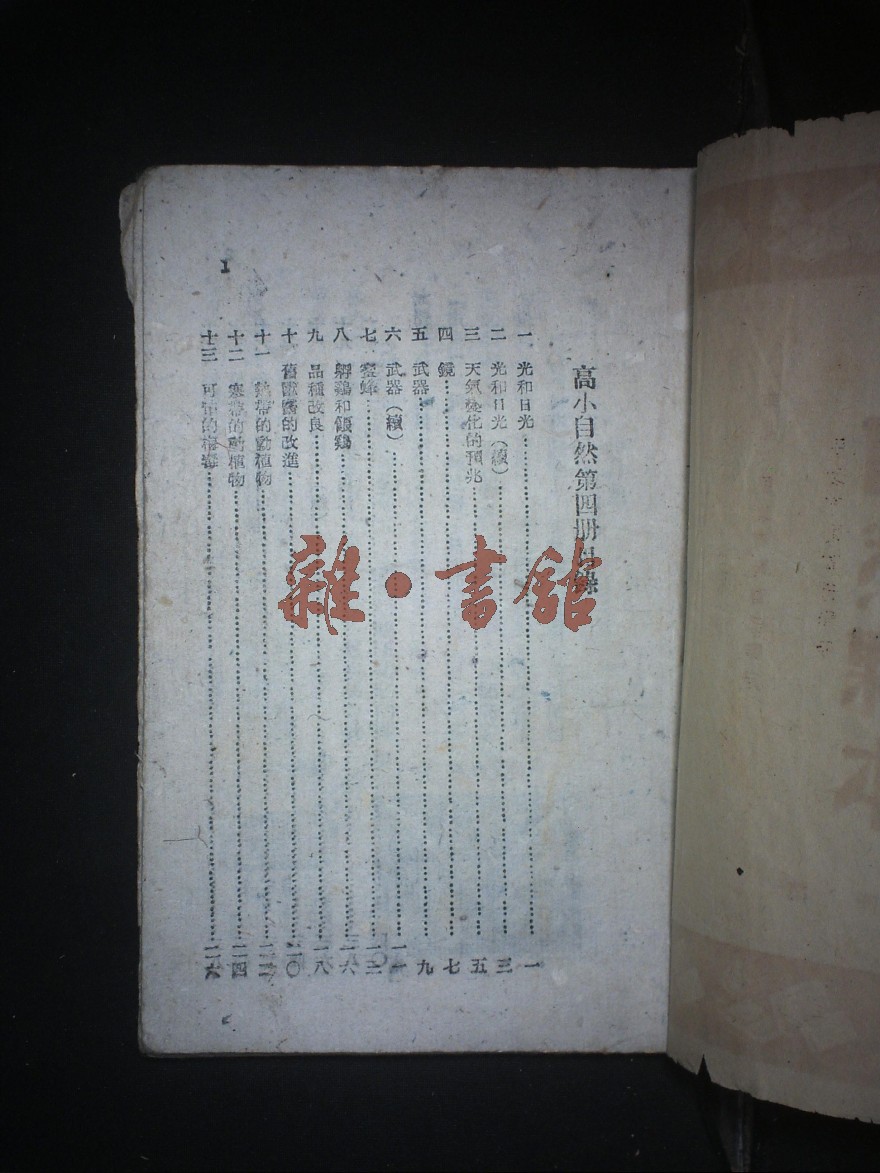 高小自然第四册目錄
一 光和日光 一
二 光和日光（續） 三
三 天氣變化的預兆 五
四 鏡 七
五 武器 九
六 武器（續） 一一
七 蜜蜂 一三
八 孵鷄和餵鷄 一六
九 品種改良 一八
十 舊獸醫的改進 二〇
十一 熱帶的動植物 二二
十二 寒帶的動植物 二四
十三 可怕的梅毒 二六
1
雜·書館